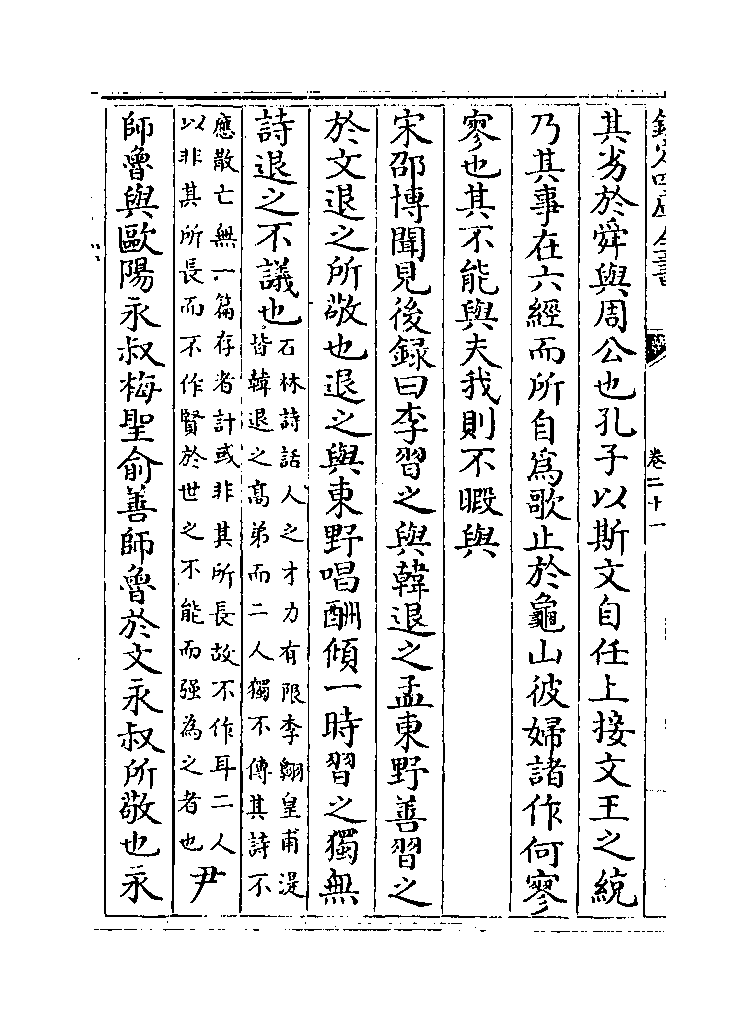 欽定四庫全書
卷二十一
其劣於舜與周公也孔子以斯文自任上接文王之統
乃其事在六經而所自為歌止於龜山彼婦諸作何寥
寥也其不能與夫我則不暇與
宋邵博聞見後録曰李習之與韓退之孟東野善習之
於文退之所敬也退之與東野唱酬傾一時習之獨無
詩退之不議也
石林詩話人之才力有限李翺皇甫湜
皆韓退之高弟而二人獨不傳其詩不
應散亡無一篇存者計或非其所長故不作耳二人
以非其所長而不作賢於世之不能而强為之者也
尹
師魯與歐陽永叔梅聖俞善師魯於文永叔所敬也永